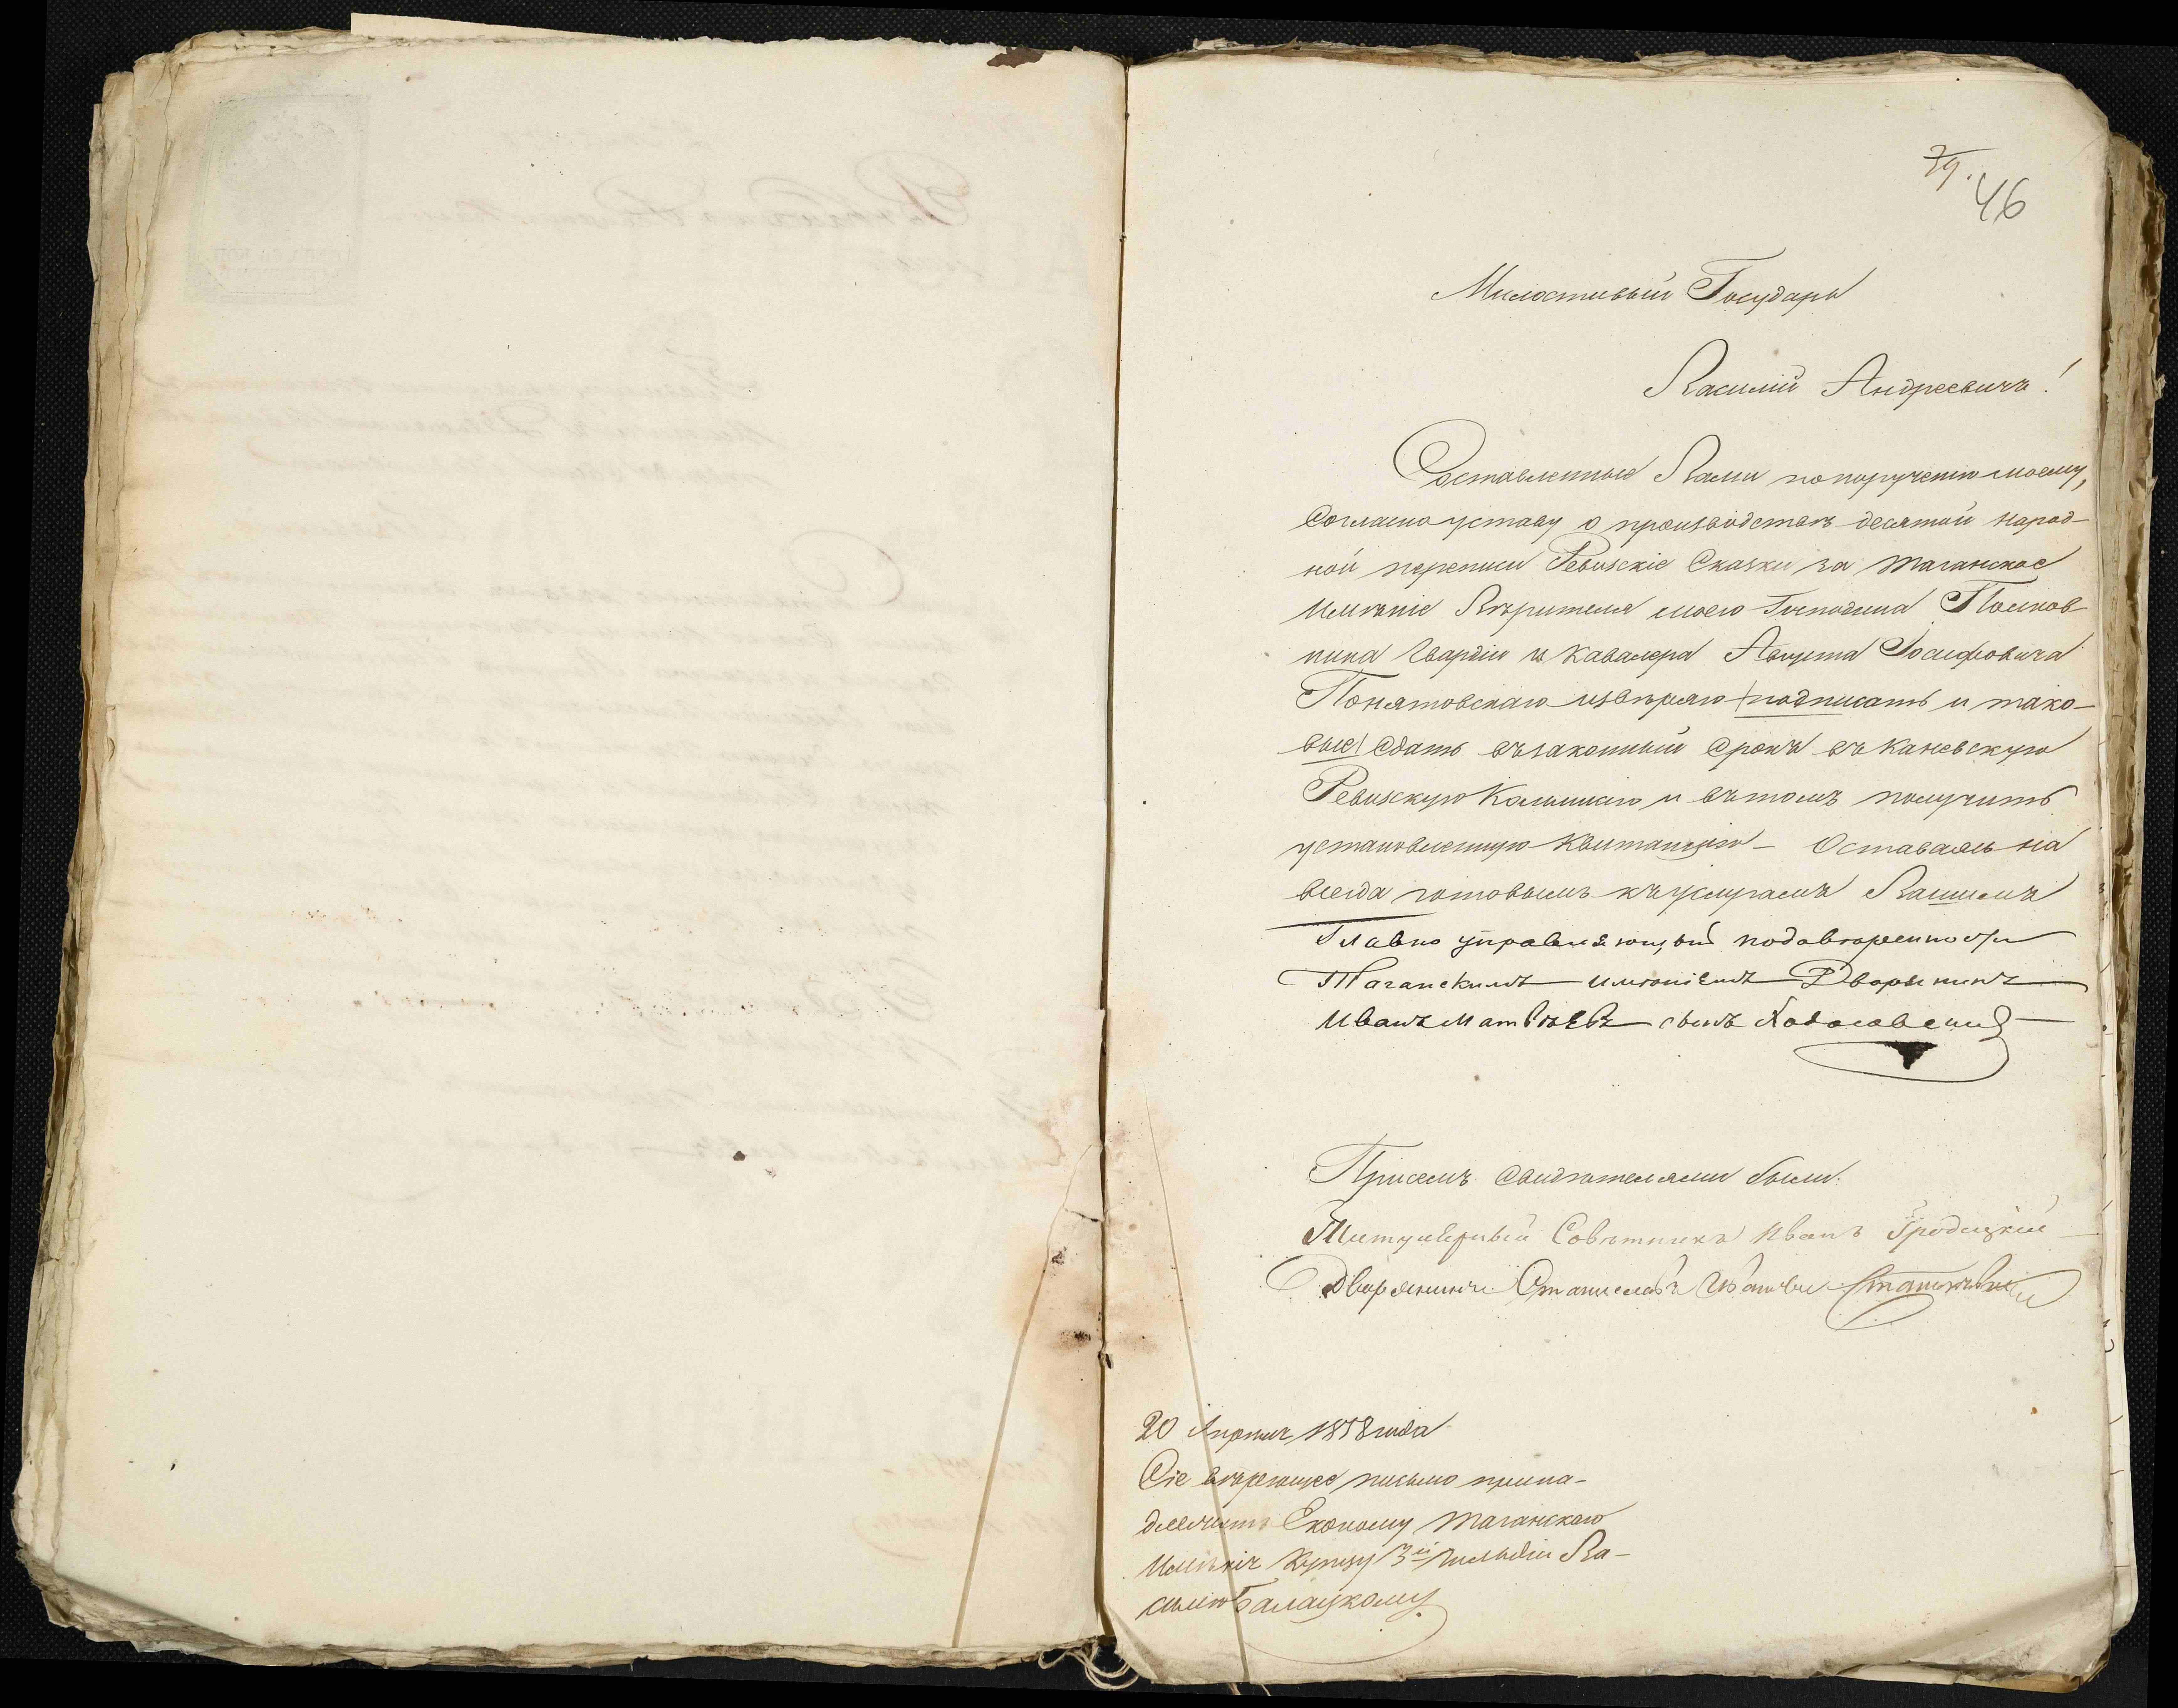 39.
46
Милостивый Государь
Василій Андреевичъ!
Составленные Вами по порученію моему,
согласно уставу о производствѣ десятой народ-
ной переписи Ревизскіе Сказки за Таганское
Имѣніе Вѣрителя моего Господина Полков-
ника Гвардіи и Кавалера Августа Іосифовича
Понятовскаго извѣряю подписать и тако-
вые сдать въ законный срокъ въ Каневскую
Ревизскую Комисію и въ томъ получить
установленную Квитанцію – Оставаясь на
всегда готовымъ къ услугамъ Вашимъ
Главно управляющый по довѣренности
Таганскимъ имѣніемъ Дворянинъ
Иванъ Матвѣевъ сынъ
При семъ свидѣтелями были:
Титулярный Совѣтникъ Иванъ Гродицкій
Дворянинъ Станиславъ
20 Апрѣля 1858 года
Сіе вѣрющее письмо прина-
длежитъ Економу Таганскаго
Имѣнія Купцу 3й Гильдіи Ва-
силію Балацкому